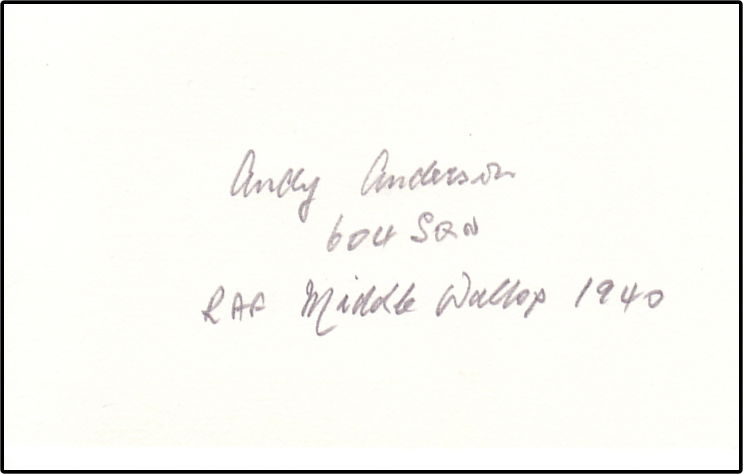 Andy Anderson
604 SQN
RAF Middle Wallop 1940